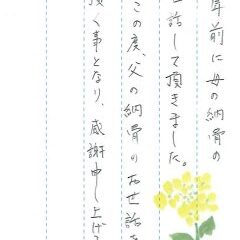 年前に母の納骨の
世話して頂きました。
この度、父の納骨のお世話を
頂く事となり、感謝申し上げ